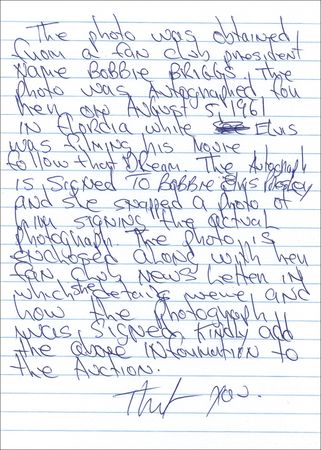 The photo was obtained
from a fan club president
Name BOBBIE BRIGGS. The
photo was Autographed for
her on August 5, 1961
in Flordia while Elvis
was filming his movie
follow that Dream. The Autograph
is signed TO BOBBIE Elvis Presley
and she snapped a photo of
him signing the actual
photograph. The photo is
enclosed along with her
fan club news letter in
which she details where and
how the photograph
was signed. Kindly add
the above information to
the Auction.
Thank you.